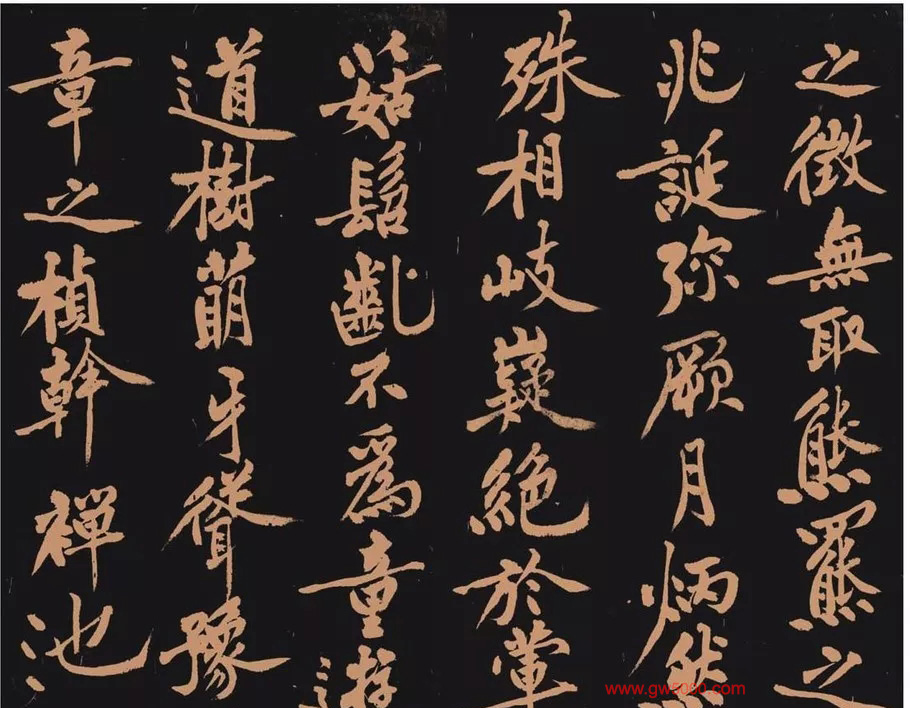 之徵無取熊羆之
兆誕弥厥月炳然
殊相岐嶷絶於葷
茹髫齓不爲童遊
道樹萌牙聳豫
章之楨幹禪池
www.gw5000.com